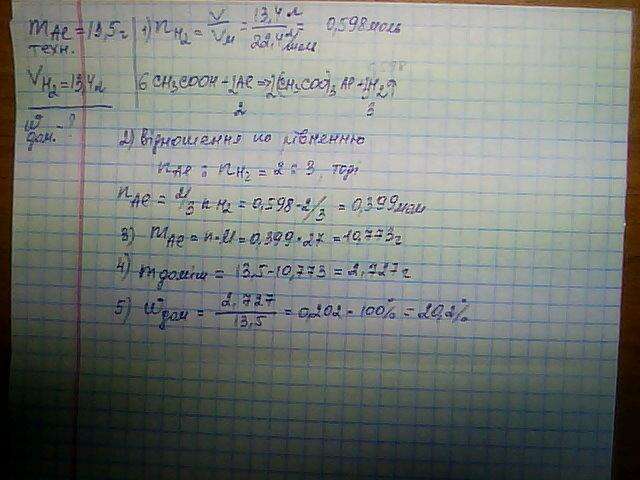 m Al = 13,5 г
техн.
V H₂ = 13,4 л
W дом. - ?
1) n H₂ = V / Vм = 13,4 л / 22,4 л/моль = 0,598 моль
6 CH₃COOH + 2Al => 2(CH₃COO)₃ Al + 3H₂↑
2 3
2) Відношення по рівненню
n Al : n H₂ = 2 : 3, тоді
n Al = 2/3 n H₂ = 0,598 · 2/3 = 0,399 моль
3) m Al = n · M = 0,399 · 27 = 10,773 г
4) m доміш = 13,5 - 10,773 = 2,727 г
5) W дом = 2,727 / 13,5 = 0,202 · 100% = 20,2%